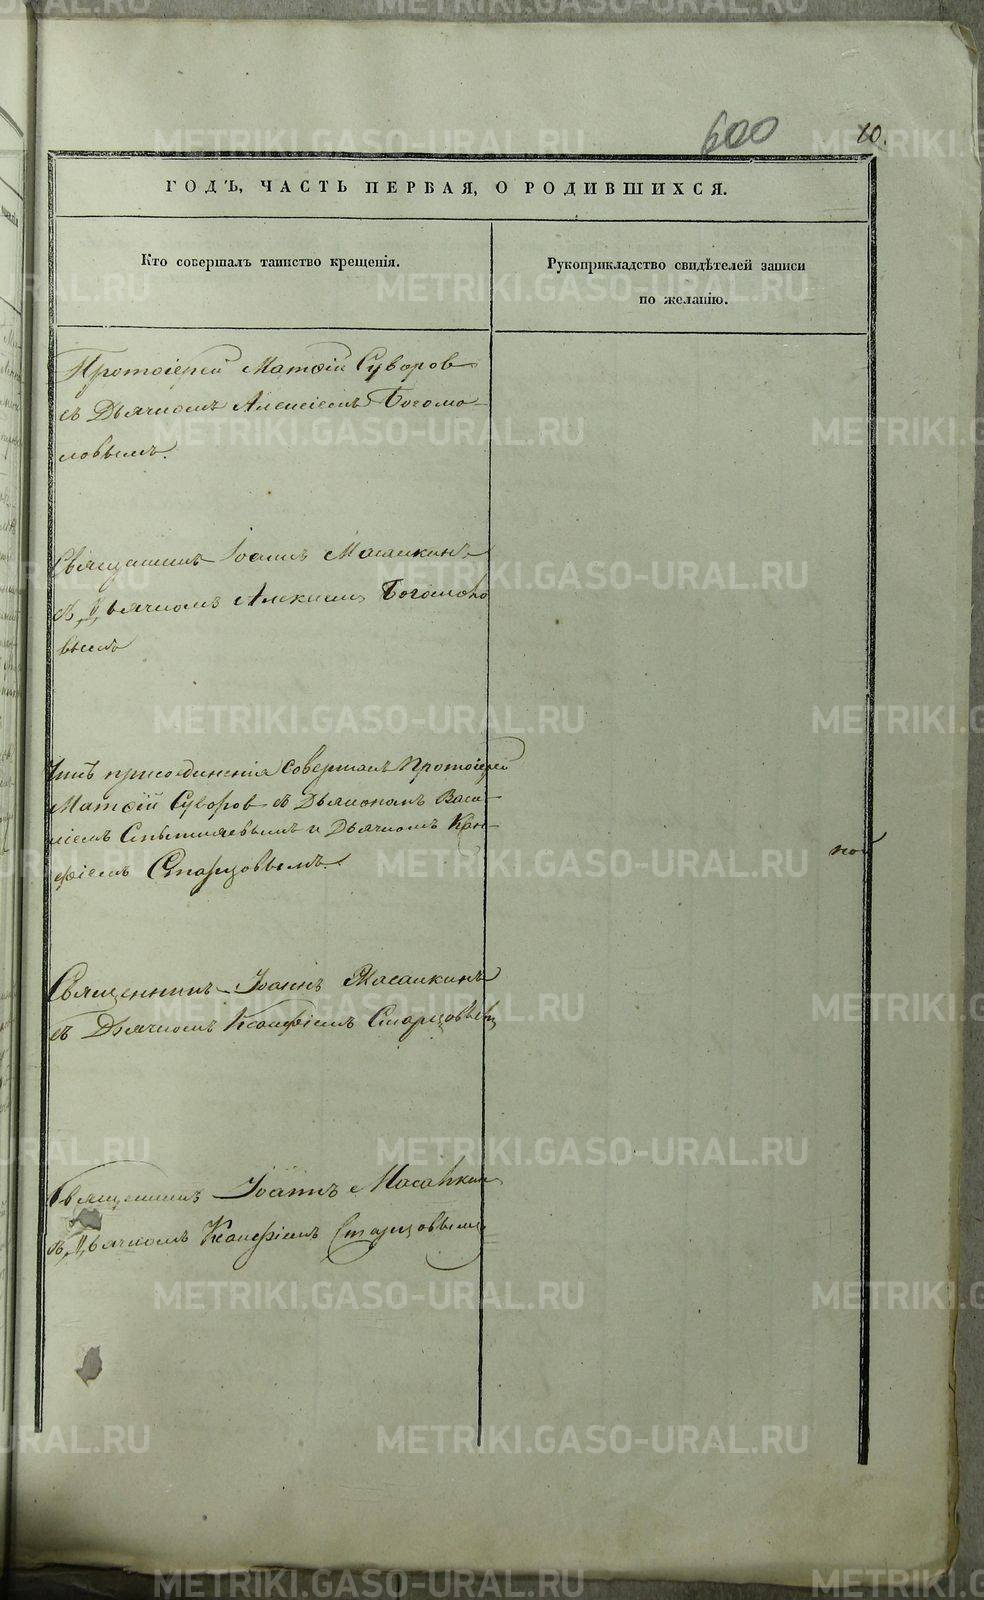 600
10.
ГОДЪ, ЧАСТЬ ПЕРВАЯ, О РОДИВШИХСЯ.
Кто совершалъ таинство крещенія.
Рукоприкладство свидѣтелей записи
по желанію.
Протоіерей Матѳій Суворов
съ Дьячкомъ Алексіемъ Богомо-
ловымъ.
Священникъ Іоаннъ Масалкинъ
съ Дьячкомъ Алексіемъ Боголюбо
вымъ
Чинъ присоединенія совершалъ Протоіерей
Матѳій Суворов съ Дьякономъ Васи-
ліемъ и Дьячкомъ Кан-
фіемъ Старцовымъ.
Священникъ Іоаннъ Масалкинъ
съ Дьячкомъ Канфіемъ Старцовымъ
Священникъ Іоаннъ Масалкин
съ Дьячкомъ Канфіемъ Старцовымъ
METRIKI.GASO-URAL.RU